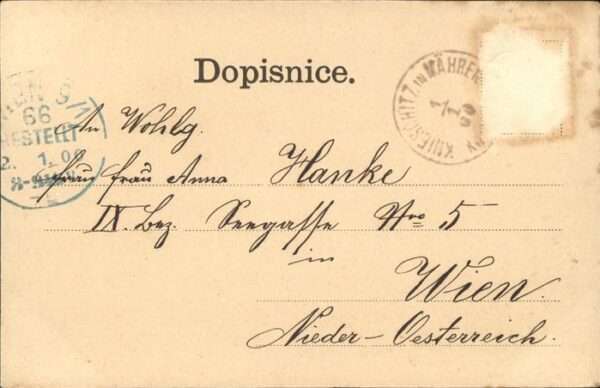 Dopisnice.
KNIESCHITZ IN MÄHREN
1
1
00
WIEN 9/
66
BESTELLT
2. 1. 00
An Wohlg.
frau Anna Hanke
IX. Bez. Seegasse Nro 5
in
Wien.
Nieder-Oesterreich.